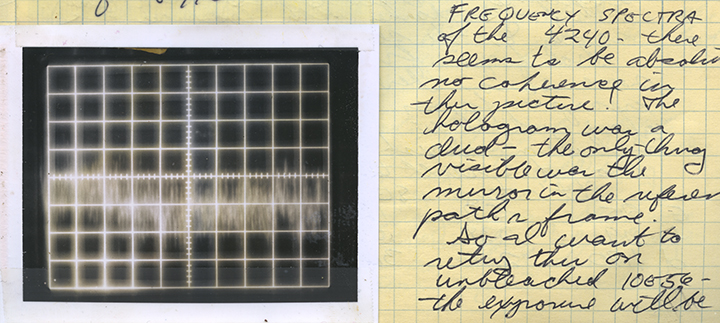 FREQUENCY SPECTRA
of the 4240 - there
seems to be absolu
no coherence in
this picture! The
hologram was a
dud - the only thing
visible was the
mirror in the referen
path & frame.
So I want to
retry this on
unbleached 10E56 -
the exposure will be